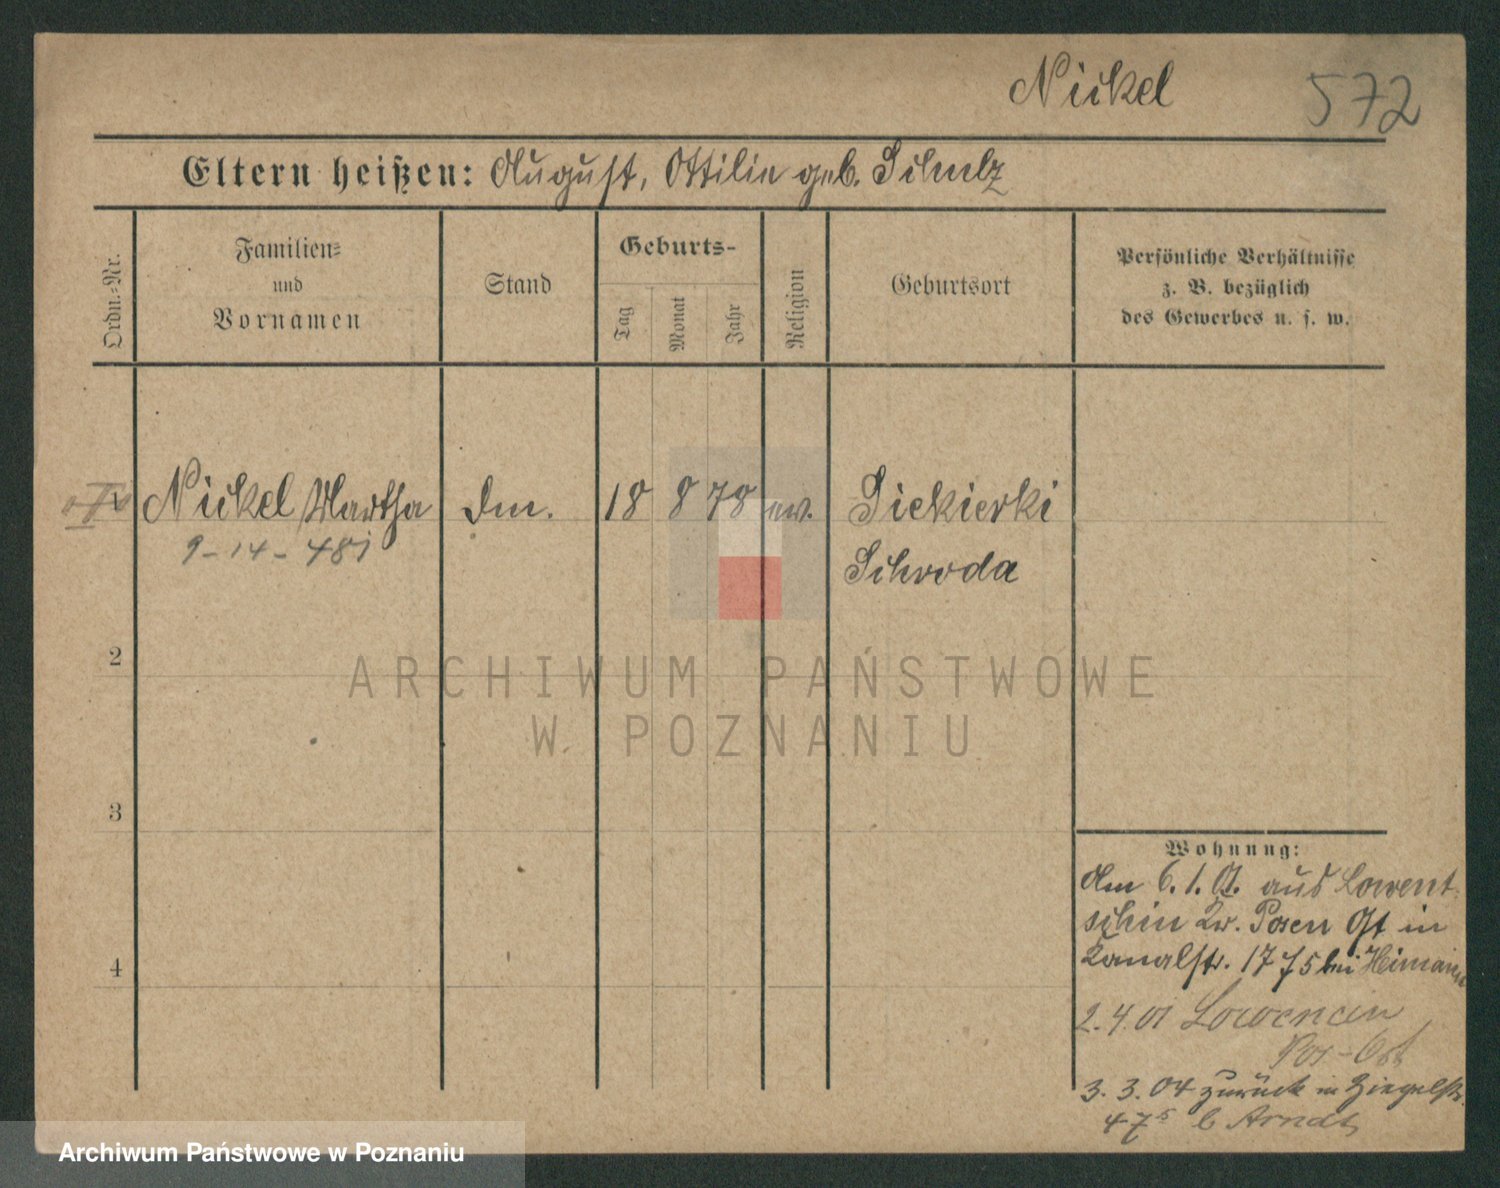 Nickel 572
Eltern heißen: August, Ottilie geb. Schulz
Ordn.-Nr.
Familien-
und
Vornamen
Stand
Geburts-
Tag
Monat
Jahr
Religion
Geburtsort
Persönliche Verhältnisse
z. B. bezüglich
des Gewerbes u. s. w.
1 Nickel Martha Dm. 18 8 78 ev. Siekierki
9-14-481
Schroda
2
3
4
ARCHIWUM PAŃSTWOWE
W POZNANIU
Wohnung:
Am 6.1.01. aus Lowent-
schin Kr. Posen Ost in
Kanalstr. 17 bei Heimann
2.4.01 Lowencin
Pos-Ost
3.3.04 zurück in Ziegelstr.
4 b Arndt
Archiwum Państwowe w Poznaniu